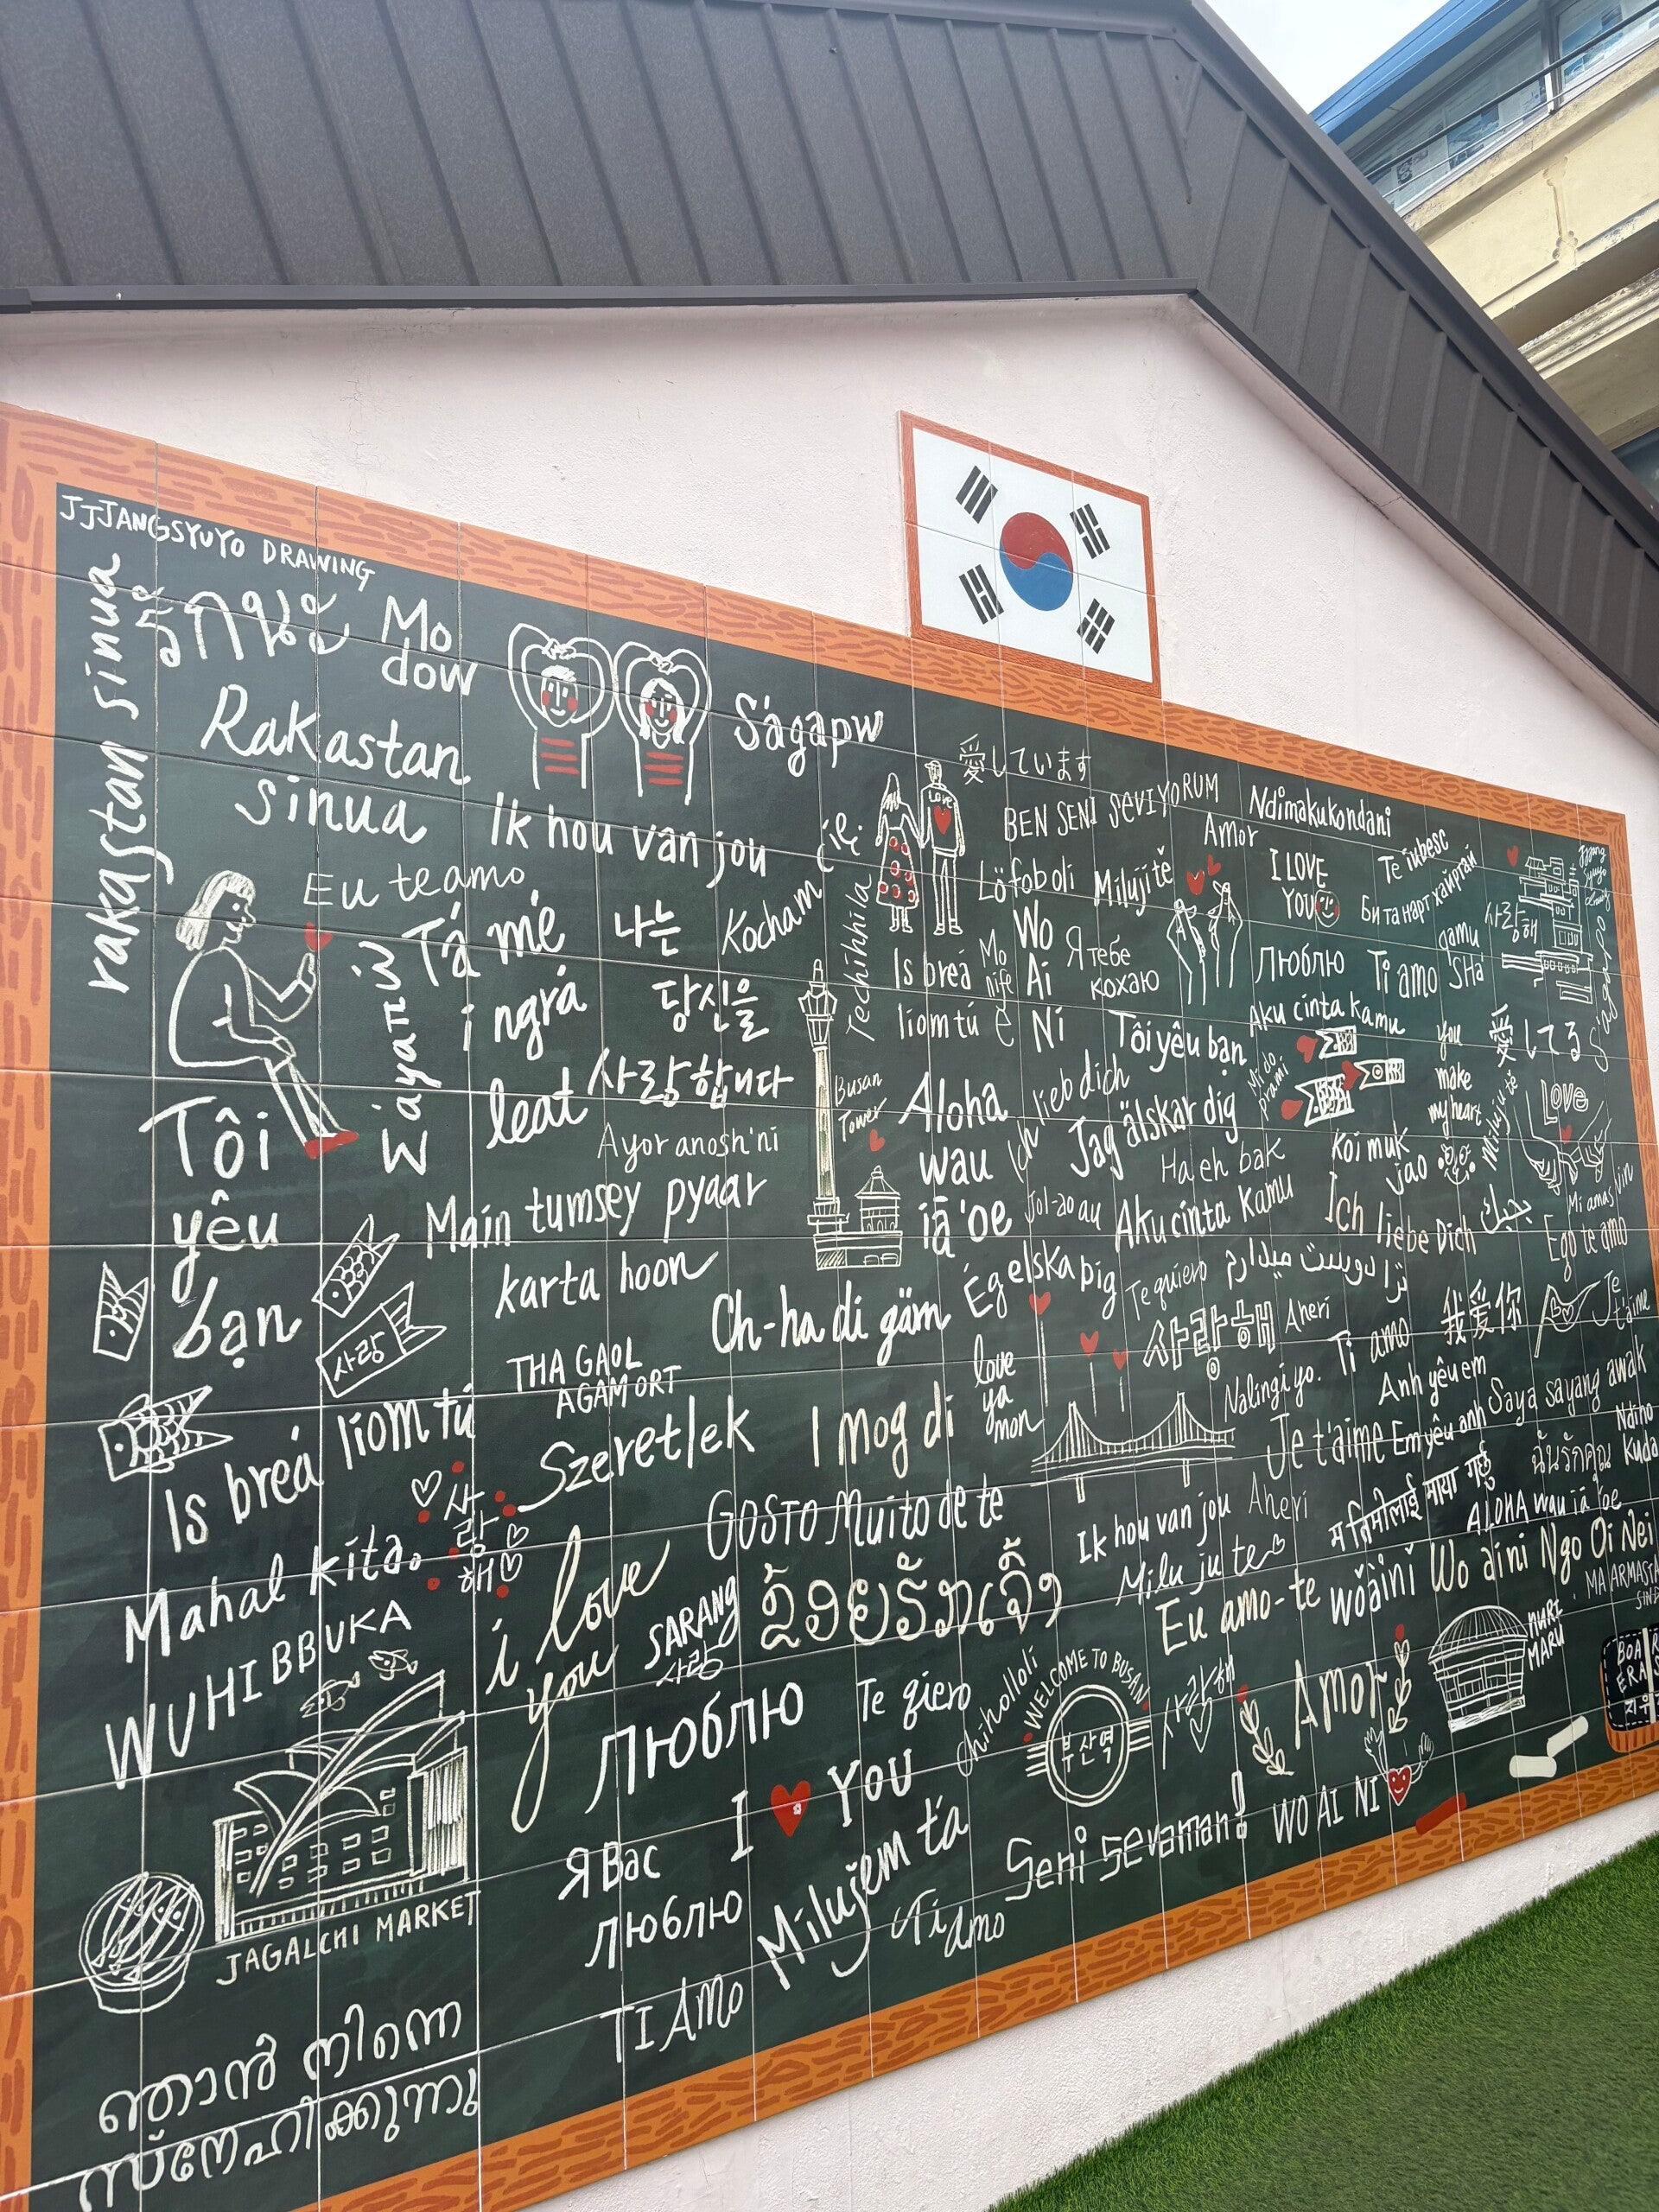 JJJANGSYUYO DRAWING
rakastan sinua
Mo
dow
Rakastan
sinua
S'agapw
Ik hou van jou
Eu te amo
Tá mé
i ngrá
leat
나는
당신을
사랑합니다
Kocham
cię.
Techihhila
Σ'αγαπώ
Tôi
yêu
bạn
Ayor anosh'ni
Main tumsey pyaar
karta hoon
사랑
THA GAOL
AGAM ORT
Ch-ha di gäm
Is breá liom tú
Szeretlek
I mog di
Mahal kita.
사
랑
해
WUHIBBUKA
i love
you
GOSTO Muito de te
SARANG
사랑
ຂ້ອຍຮັກເຈົ້າ
Люблю
Te qiero
I YOU
Я Вас
люблю
Milujem ťa
Ti Amo
TI AMO
JAGALCHI MARKET
ഞാൻ നിന്നെ
സ്നേഹിക്കുന്നു
愛しています
LOVE
BEN SENI SEVIYORUM
Ndimakukondani
Amor
Lö fob oli
Milujitě
I LOVE
YOU
Te iubesc
Би та нарт хайртай
사랑해
Is breá
liom tú
Mo
nife
e
Wo
Ai
Ni
Я тебе
кохаю
Люблю
Ti amo
gamu
SHa
Aku cinta kamu
Tôi yêu bạn
Busan
Tower
Aloha
wau
iā 'oe
Ich lieb dich
Jag älskar dig
Mi do
prami
you
make
my heart
愛してる
S'agapo
Miluju tě
LOVE
Ha eh bak
Koi muk
jao
Jol-ao au
Aku cinta Kamu
Ich liebe Dich
بحبك
Mi amas vin
Ég elska þig
Te quiero
ترا دوست میدارم
Ego te amo
사랑해
Aheri
Ti amo
我爱你
Je
t'aime
love
ya
mon
Nalingi yo.
Anh yêu em
Saya sayang awak
Je t'aime
Em yêu anh
ฉันรักคุณ
Ndino
Kuda
Ik hou van jou
Aheri
म तिमीलाई माया गर्छु
ALOHA wau iā 'oe
Milu ju te
Eu amo-te
wǒ ài nǐ
Wo ai ni
Ngo Oi Nei
Chiholloli
WELCOME TO BUSAN
부산역
사랑해
Amor
NURI
MARU
MA ARMASTAN
SIND
BOA
ERA
지우
Seni sevaman!
WO AI NI